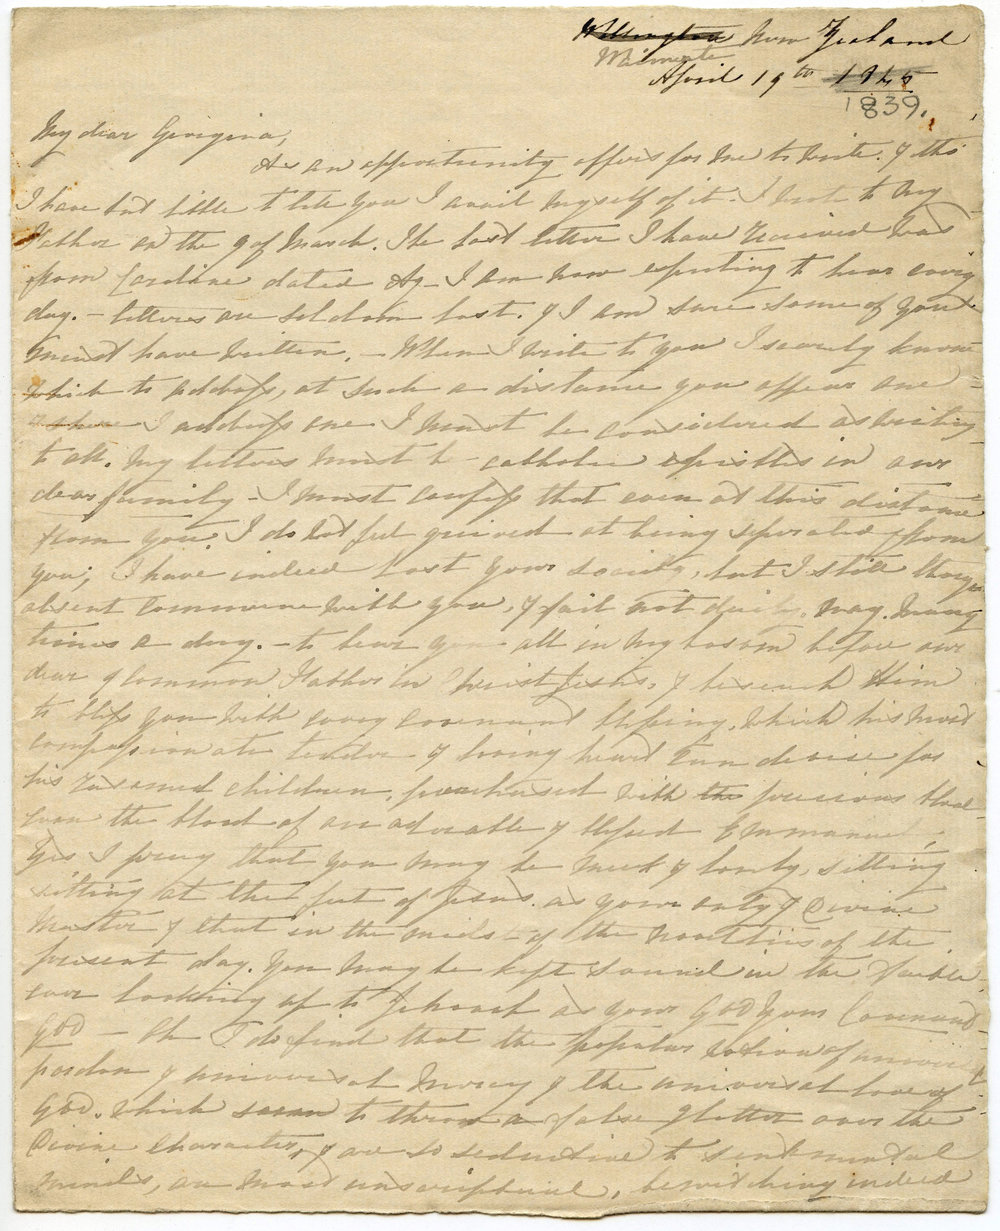 Wellington New Zealand
Waimate
April 19th 1845
1839.
My dear Georgina,
As an opportunity offers for me to write, & tho'
I have but little to tell you I avail myself of it. I wrote to my
Father on the 9 of March. The last letter I have received was
from Caroline dated Ag - I am now expecting to hear every
day. - letters are seldom lost. & I am sure some of you
must have written. - When I write to you I scarcely know
which to address, at such a distance you appear one -
where I address one I must be considered as writing
to all. My letters must be catholic epistles in our
dear family - I must confess that even at this distance
from you, I do not feel grieved at being separated from
you; I have indeed lost your society, but I still though
absent commune with you, & fail not daily, nay, many
times a day. - to bear you all in my bosom before our
dear & common Father in Christ Jesus, & beseech Him
to bless you with every covenant blessing, which his most
compassionate tender & loving heart can devise for
his ransomed children, purchased with the precious blood
even the blood of our adorable & blessed Emmanuel,
Yes I pray that you may be meek & lowly, sitting
sitting at the feet of Jesus. as your only & Divine
Master & that in the midst of the novelties of the
present day. You may be kept sound in the faith.
ever looking up to Jehovah as your God your Covenant
God - Oh I do find that the popular notion of universal
pardon & universal mercy & the universal love of
God. which seem to throw a false glitter over the
Divine Character, & are so seductive to sentimental
minds, are most unscriptural, bewitching indeed